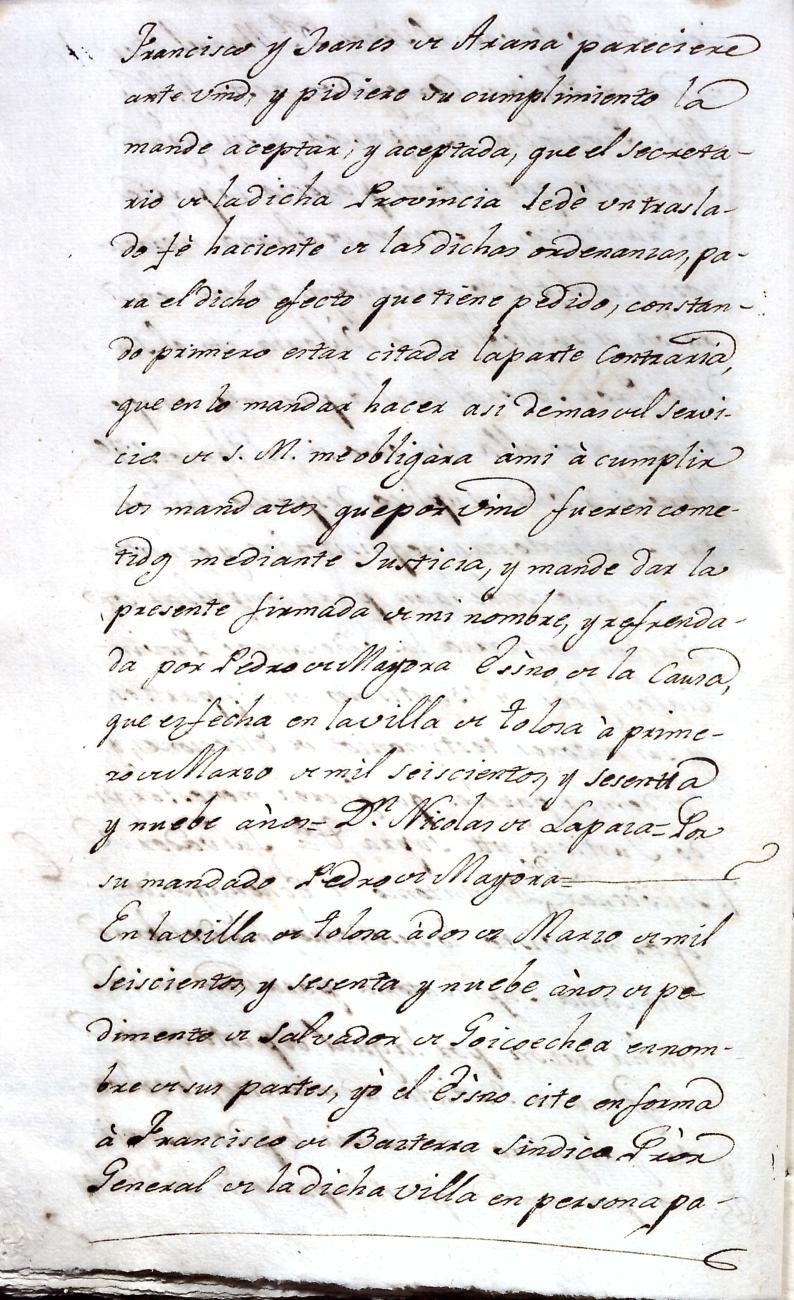 Francisco y Joanes de Arana pareciere
ante vmd, y pidiere su cumplimiento la
mande aceptar, y aceptada, que el secreta-
rio de la dicha Provincia le dè un trasla-
do fè haciente de las dichas ordenanzas, pa-
ra el dicho efecto que tiene pedido, constan-
do primero estar citada la parte Contraria,
que en lo mandar hacer asi demas del servi-
cio de S. M. me obligara àmi à cumplir
los mandatos que por vmd fueren come-
tidos mediante Justicia, y mande dar la
presente firmada de mi nombre, y refrenda-
da por Pedro de Mayora Essno de la Causa,
que es fecha en la villa de tolosa à prime-
ro de Marzo de mil seiscientos, y sesenta
y nuebe años= Dn. Nicolas de Lapaza= Por
su mandado Pedro de Mayora=
En la villa de tolosa à dos de Marzo de mil
seiscientos, y sesenta y nuebe años de pe
dimento de Salvador de Goicoechea en nom-
bre de sus partes, yò el Essno cite en forma
à Francisco de Bazterra Sindico Pròr
General de la dicha villa en persona pa-